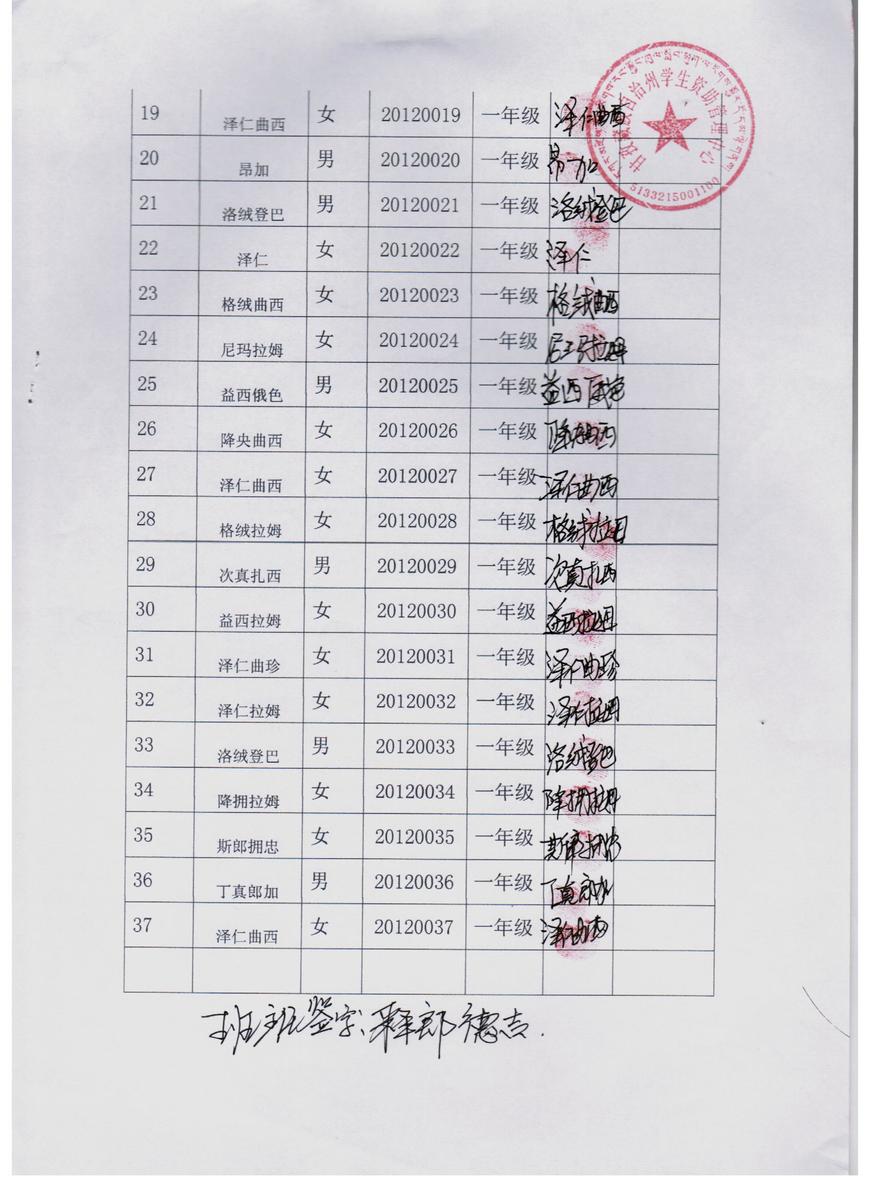 甘孜藏族自治州学生资助管理中心
5133215001100
19 泽仁曲西 女 20120019 一年级 泽仁曲西
20 昂加 男 20120020 一年级 昂加
21 洛绒登巴 男 20120021 一年级 洛绒登巴
22 泽仁 女 20120022 一年级 泽仁
23 格绒曲西 女 20120023 一年级 格绒曲西
24 尼玛拉姆 女 20120024 一年级 尼玛拉姆
25 益西俄色 男 20120025 一年级 益西俄色
26 降央曲西 女 20120026 一年级 降央曲西
27 泽仁曲西 女 20120027 一年级 泽仁曲西
28 格绒拉姆 女 20120028 一年级 格绒拉姆
29 次真扎西 男 20120029 一年级 次真扎西
30 益西拉姆 女 20120030 一年级 益西拉姆
31 泽仁曲珍 女 20120031 一年级 泽仁曲珍
32 泽仁拉姆 女 20120032 一年级 泽仁拉姆
33 洛绒登巴 男 20120033 一年级 洛绒登巴
34 降拥拉姆 女 20120034 一年级 降拥拉姆
35 斯郎拥忠 女 20120035 一年级 斯郎拥忠
36 丁真郎加 男 20120036 一年级 丁真郎加
37 泽仁曲西 女 20120037 一年级 泽仁曲西
班主任签字: 郎德吉.